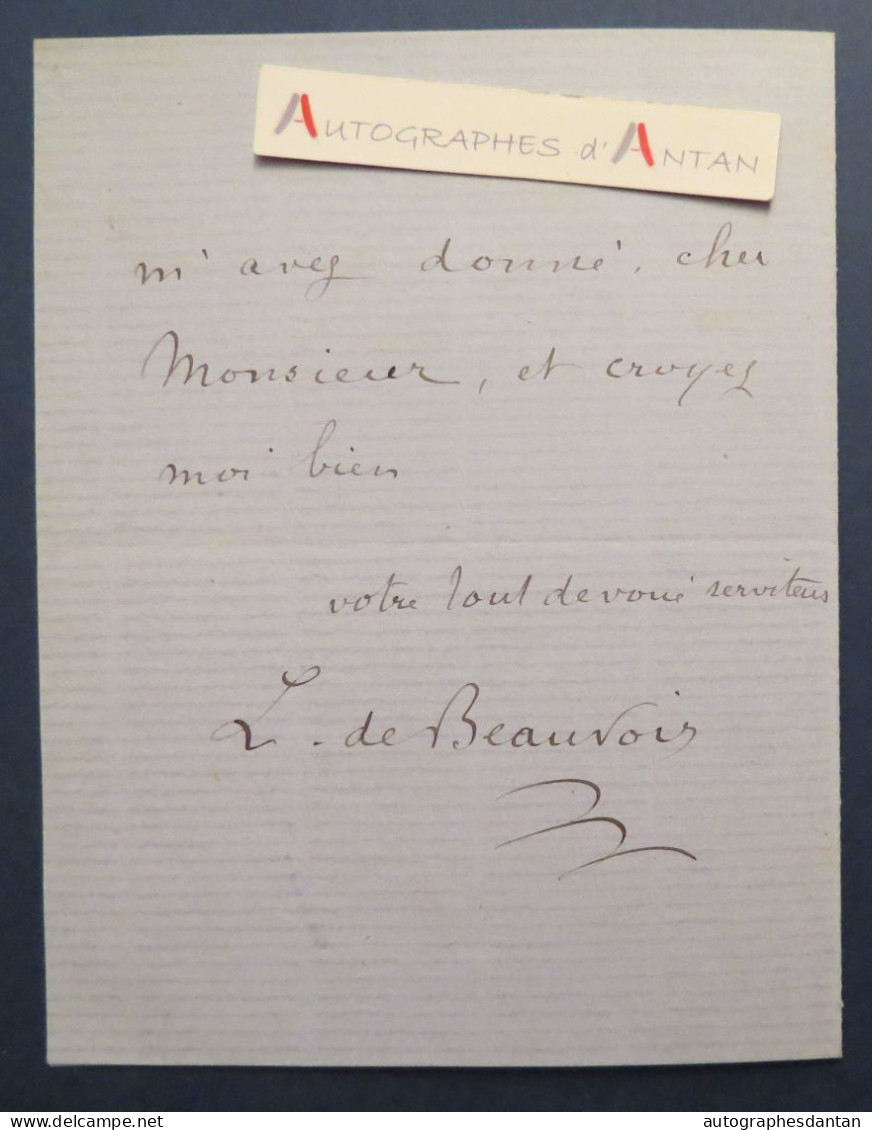 AUTOGRAPHES d'ANTAN
m' avez donné, cher
Monsieur, et croyez
moi bien
votre tout devoué serviteur
L. de Beauvoir
delcampe.net
autographesdantan